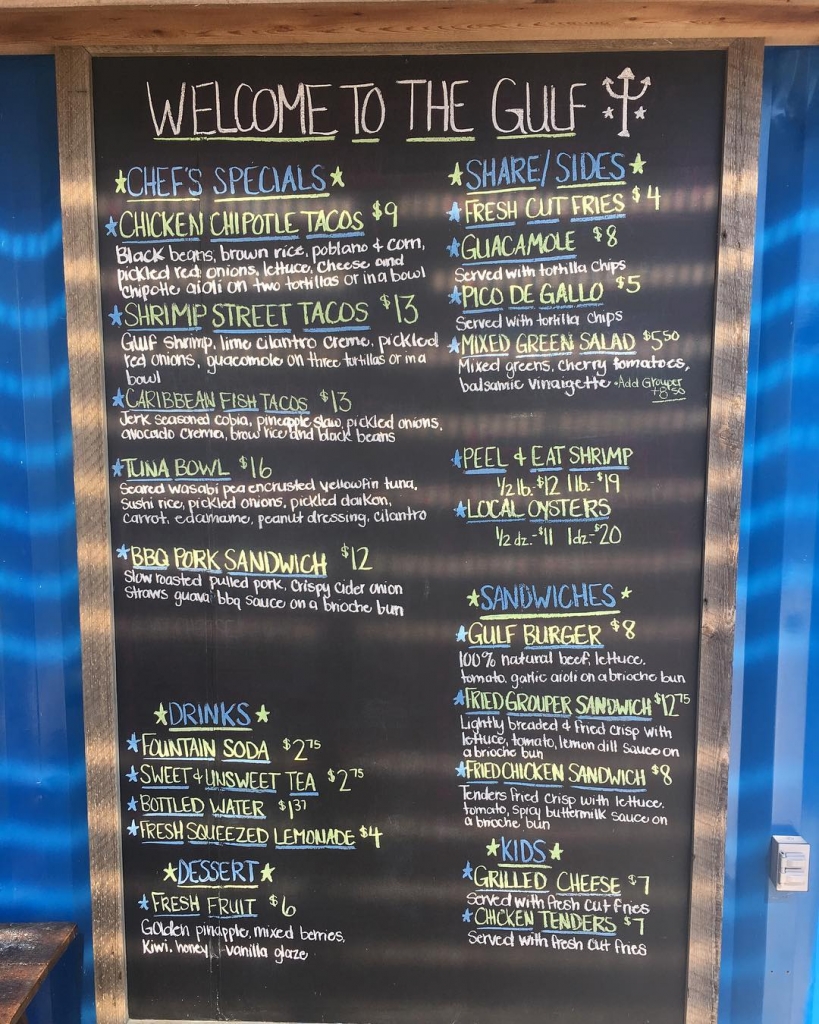 WELCOME TO THE GULF
CHEF'S SPECIALS
CHICKEN CHIPOTLE TACOS $9
Black beans, brown rice, poblano & corn,
pickled red onions, lettuce, cheese and
chipotle aioli on two tortillas or in a bowl
SHRIMP STREET TACOS $13
Gulf shrimp, lime cilantro creme, pickled
red onions, guacamole on three tortillas or in a
bowl
CARIBBEAN FISH TACOS $13
Jerk seasoned cobia, pineapple slaw, pickled onions,
avocado crema, brow rice and black beans
TUNA BOWL $16
Seared wasabi pea encrusted yellowfin tuna,
Sushi rice, pickled onions, pickled daikon,
carrot, edamame, peanut dressing, cilantro
BBQ PORK SANDWICH $12
Slow roasted pulled pork, crispy cider onion
straws guava bbq sauce on a brioche bun
DRINKS
FOUNTAIN SODA $2.75
SWEET & UNSWEET TEA $2.75
BOTTLED WATER
FRESH SQUEEZED LEMONADE $4
DESSERT
FRESH FRUIT $6
Golden pineapple, mixed berries,
Kiwi, honey vanilla glaze
SHARE/SIDES
FRESH CUT FRIES $4
GUACAMOLE $8
Served with tortilla chips
PICO DE GALLO $5
Served with tortilla chips
MIXED GREEN SALAD $5.50
Mixed greens, cherry tomatoes,
balsamic vinaigette Add Grouper
+8.50
PEEL & EAT SHRIMP
1/2 lb. $12 1 lb.-$19
LOCAL OYSTERS
1/2 dz.-$11 1dz-$20
SANDWICHES
GULF BURGER $8
100% natural beef, lettuce,
tomato, garlic aioli on a brioche bun
FRIED GROUPER SANDWICH $12.75
Lightly breaded & fried crisp with
lettuce, tomato, lemon dill sauce on
a brioche bun
FRIED CHICKEN SANDWICH $8
Tenders fried crisp with lettuce,
tomato, spicy buttermilk sauce on
a brioche bun
KIDS
GRILLED CHEESE $7
Served with fresh cut fries
CHICKEN TENDERS $7
Served with fresh cut fries